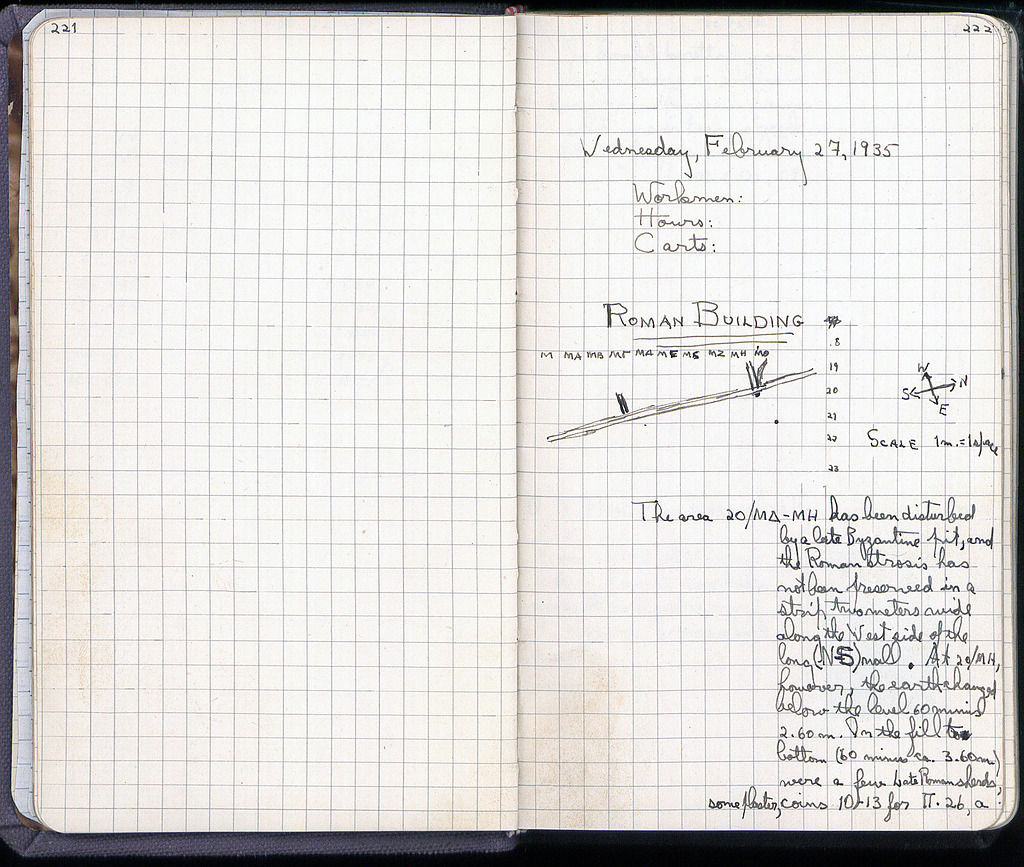 221
222
Wednesday, February 27, 1935
Workmen:
Hours:
Carts:
ROMAN BUILDING
M MA MB MΓ MΔ ME MS MZ MH MΘ
18
19
20
21
22
23
W
S N
E
SCALE 1m.=1space
The area 20/MΔ-MH has been disturbed
by a late Byzantine pit, and
the Roman strosis has
not been preserved in a
strip two meters wide
along the West side of the
long (NS) wall. At 20/MH,
however, the earth changed
below the level 60 minus
2.60 m. In the fill to
bottom (60 minus ca. 3.60m.)
were a few Late Roman sherds,
some plaster, coins 10-13 for Π. 26, a